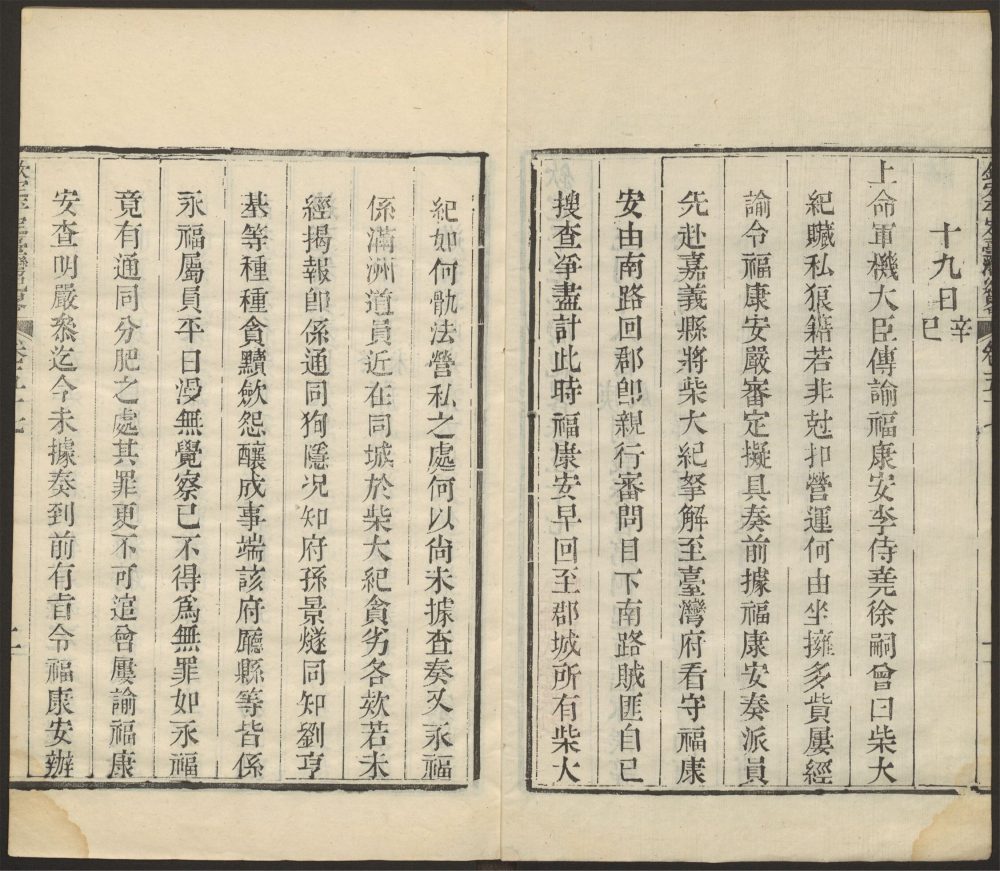 十九日辛巳
上命軍機大臣傳諭福康安李侍堯徐嗣曾曰柴大
紀贓私狼籍若非尅扣營運何由坐擁多貲屢經
諭令福康安嚴審定擬具奏前據福康安奏派員
先赴嘉義縣將柴大紀拏解至臺灣府看守福康
安由南路回郡卽親行審問目下南路賊匪自已
搜查爭盡計此時福康安早回至郡城所有柴大
紀如何骫法營私之處何以尙未據查奏又永福
係滿洲道員近在同城於柴大紀貪劣各欵若未
經揭報卽係通同狥隱况知府孫景燧同知劉亨
基等種種貪黷歛怨釀成事端該府廳縣等皆係
永福屬員平日漫無覺察已不得爲無罪如永福
竟有通同分肥之處其罪更不可逭曾屢諭福康
安查明嚴叅迄今未據奏到前有旨令福康安辦